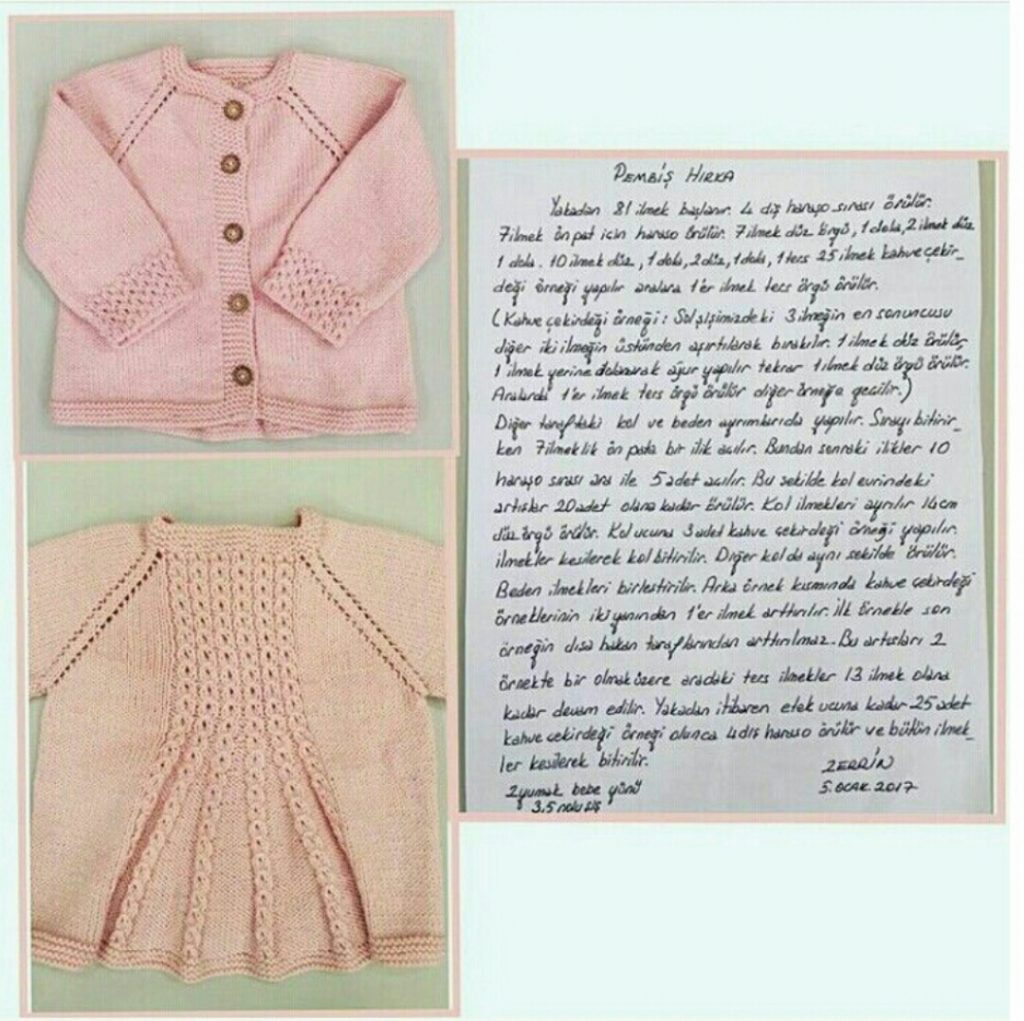 PEMBİŞ HIRKA
Yakadan 81 ilmek başlanır. 4 diş haraşo sırası örülür.
7 ilmek ön pat için haraşo örülür. 7 ilmek düz örgü, 1 dola, 2 ilmek düz
1 dola. 10 ilmek düz, 1 dola, 2 düz, 1 dola, 1 ters 25 ilmek kahve çekir_
değı örneği yapılır aralara 1'er ilmek ters örgü örülür.
(Kahve çekirdeği örneği: Sol şişimizdeki 3 ilmeğin en sonuncusu
diğer iki ilmeğin üstünden aşırtılarak bırakılır. 1 ilmek düz örülür,
1 ilmek yerine dolanarak ajur yapılır tekrar 1 ilmek düz örgü örülür.
Aralarda 1'er ilmek ters örgü örülür diğer örneğe geçilir.)
Diğer taraftaki kol ve beden ayrımlarıda yapılır. Sırayı bitirir_
ken 7 ilmeklik ön pata bir ilik açılır. Bundan sonraki ilikler 10
haraşo sırası ara ile 5 adet açılır. Bu şekilde kol evindeki
artışlar 20 adet olana kadar örülür. Kol ilmekleri ayrılır 14 cm
düz örgü örülür. Kol ucuna 3 adet kahve çekirdeği örneği yapılır.
ilmekler kesilerek kol bitirilir. Diğer kol da aynı şekilde örülür.
Beden ilmekleri birleştirilir. Arka örnek kısmında kahve çekirdeği
örneklerinin iki yanından 1'er ilmek arttırılır. İlk örnekle son
örneğin dışa bakan taraflarından arttırılmaz. Bu artışları 2
örnekte bir olmak üzere aradaki ters ilmekler 13 ilmek olana
kadar devam edilir. Yakadan itibaren etek ucuna kadar 25 adet
kahve çekirdeği örneği olunca 4 diş haraşo örülür ve bütün ilmek_
ler kesilerek bitirilir.
2 yumak bebe yünü
3,5 nolu şiş
ZERRİN
5. OCAK. 2017